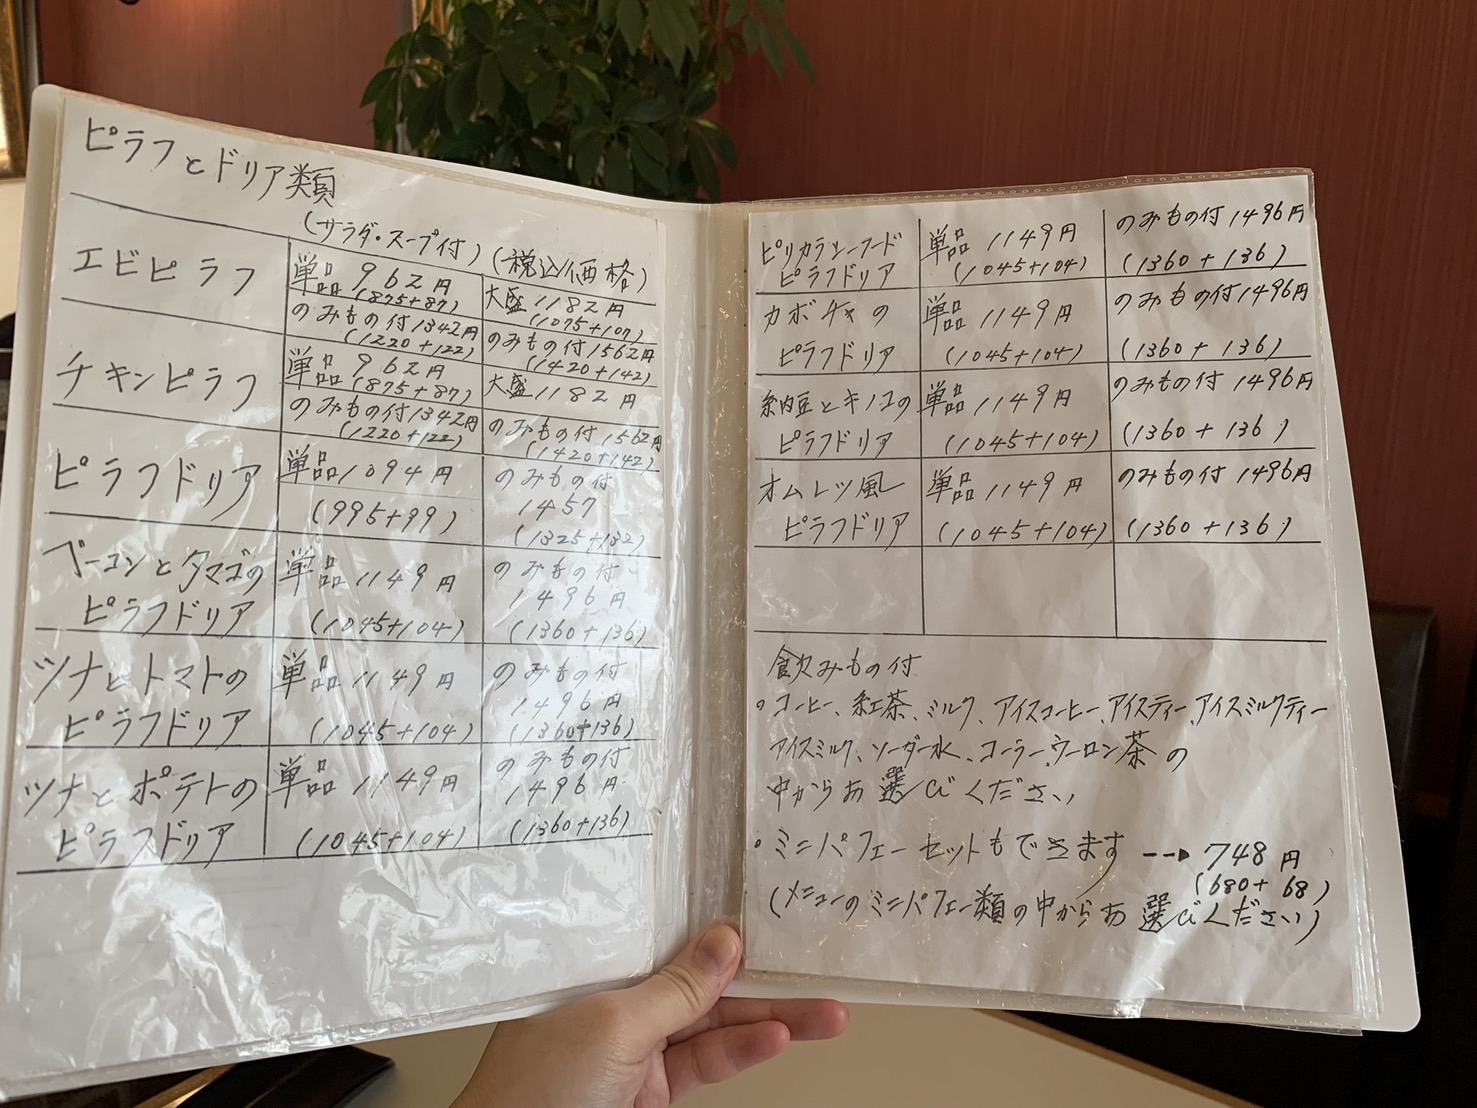 ピラフとドリア類
(サラダ・スープ付)(税込価格)
エビピラフ
単品 962円
(875+87)
大盛1182円
(1075+107)
のみもの付1342円
(1220+122)
のみもの付1562円
(1420+142)
チキンピラフ
単品 962円
(875+87)
大盛1182円
のみもの付1342円
(1220+122)
のみもの付1562円
(1420+142)
ピラフドリア
単品1094円
(995+99)
のみもの付
1457
(1325+132)
ベーコンとタマゴの
ピラフドリア
単品1149円
(1045+104)
のみもの付
1496円
(1360+136)
ツナとトマトの
ピラフドリア
単品1149円
(1045+104)
のみもの付
1496円
(1360+136)
ツナとポテトの
ピラフドリア
単品1149円
(1045+104)
のみもの付
1496円
(1360+136)
ピリカラシーフード
ピラフドリア
単品1149円
(1045+104)
のみもの付1496円
(1360+136)
カボチャの
ピラフドリア
単品1149円
(1045+104)
のみもの付1496円
(1360+136)
納豆とキノコの
ピラフドリア
単品1149円
(1045+104)
のみもの付1496円
(1360+136)
オムレツ風
ピラフドリア
単品1149円
(1045+104)
のみもの付1496円
(1360+136)
飲みもの付
・コーヒー、紅茶、ミルク、アイスコーヒー、アイスティー、アイスミルクティー
アイスミルク、ソーダー水、コーラー、ウーロン茶の
中からお選びください
・ミニパフェーセットもできます --→748円
(680+68)
(メニューのミニパフェー類の中からお選びください)